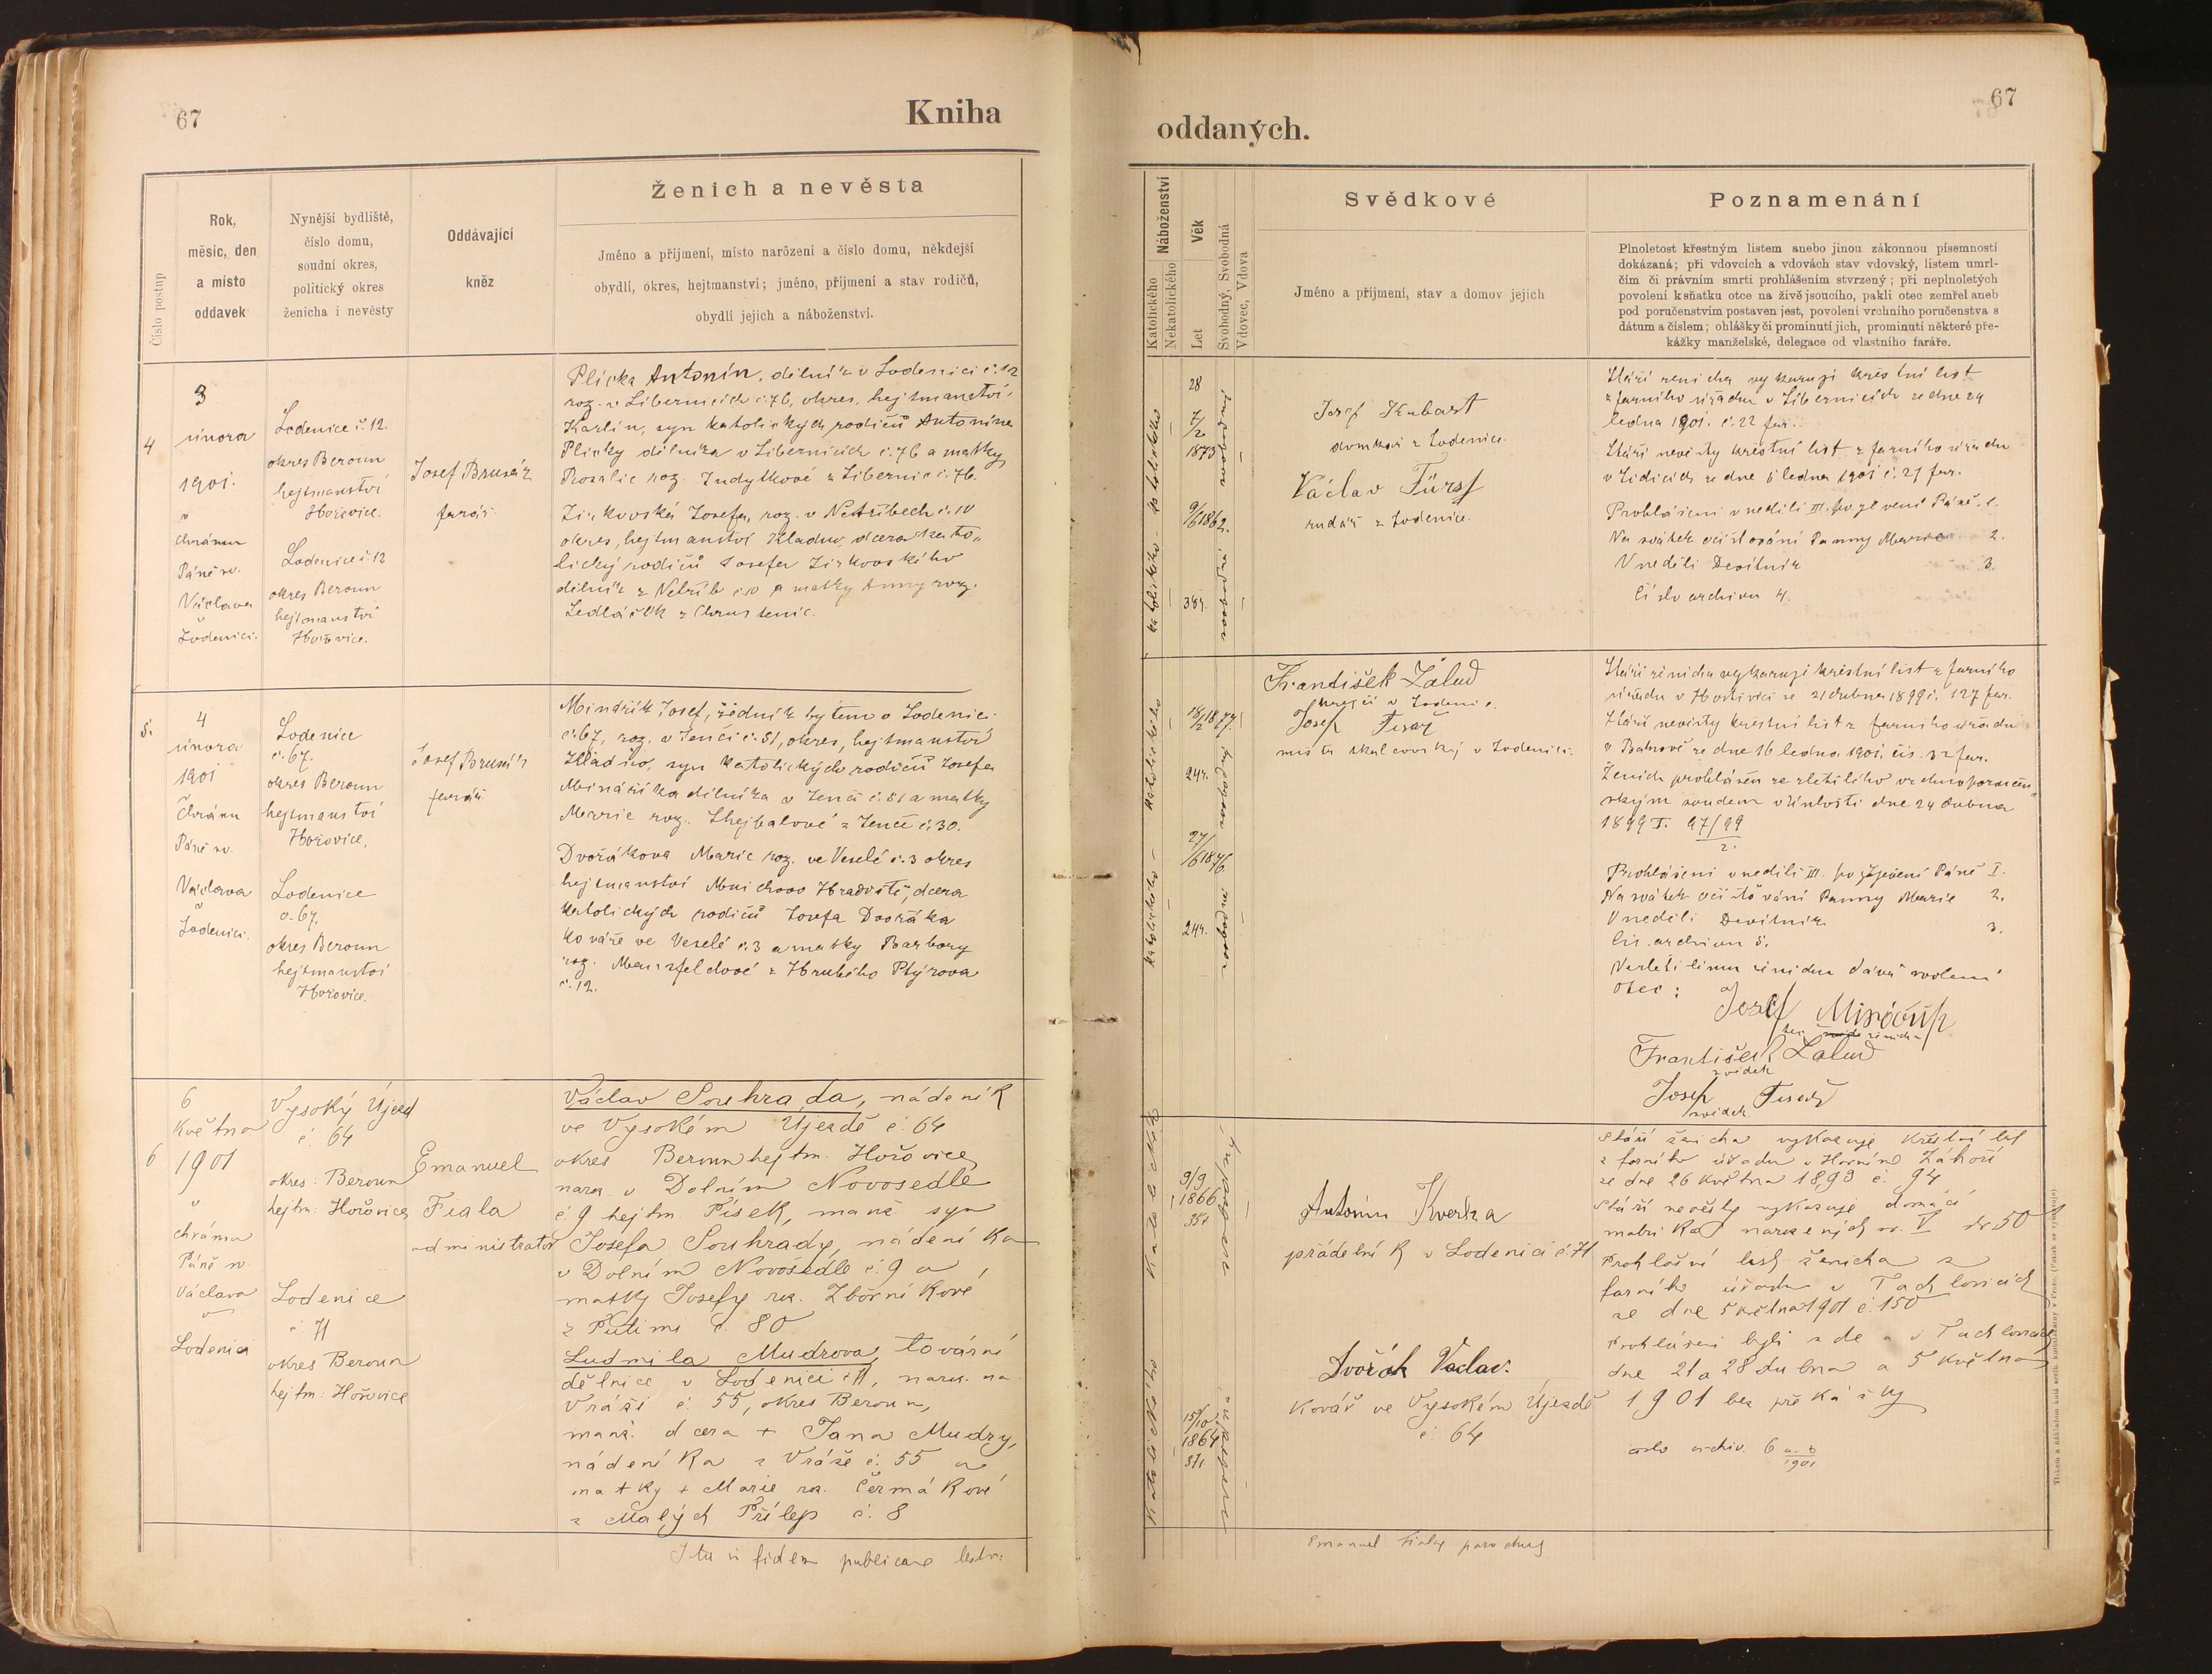 67
Kniha
Ženich a nevěsta
Číslo postup
Rok,
měsíc, den
a místo
oddavek
Nynější bydliště,
číslo domu,
soudní okres,
politický okres
ženicha i nevěsty
Oddávající
kněz
Jméno a příjmení, místo narození a číslo domu, někdejší
obydlí, okres, hejtmanství; jméno, příjmení a stav rodičů,
obydlí jejich a náboženství.
4
3
února
1901.
v
chrámu
Páně sv.
Václava
v
Lodenici.
Lodenice č. 12.
okres Beroun
hejtmanství
Hořovice.
Lodenice č. 12
okres Beroun
hejtmanství
Hořovice.
Josef Brusák
farář
Plicka Antonín, dělník v Lodenici č. 12
roz. v Libernicích č. 76, okres, hejtmanství
Karlín, syn katolických rodičů Antonína
Plicky dělníka v Libernicích č. 76 a matky
Rosalie roz. z Libernic č. 76.
Josefa, roz. v č. 10
okres, hejtmanství Kladno, dcera kato„
lický rodičů Josefa
dělník z č. 10 a matky Anny roz.
Sedláček z Chrustenic.
5.
4
února
1901
v
chrámu
Páně sv.
Václava
v
Lodenici.
Lodenice
č. 67.
okres Beroun
hejtmanství
Hořovice.
Lodenice
č. 67.
okres Beroun
hejtmanství
Hořovice.
Josef Brusák
farář
Minářík Josef, zedník bytem v Lodenici
č. 67, roz. v Jenči č. 51, okres, hejtmanství
Kladno, syn katolických rodičů Josefa
Mináříka dělníka v Jenči č. 51 a matky
Marie roz. Shejbalové z Jenče č. 30.
Dvořákova Marie roz. ve Veselé č. 3 okres
hejtmanství Mnichovo Hradiště, dcera
katolických rodičů Josefa Dvořáka
kováře ve Veselé č. 3 a matky Barbory
roz. z Hrubého
č. 12.
6
6
Května
1901
v
chrámu
Páně sv
Václava
v
Lodenici
Vysoký Újezd
č. 64
okres: Beroun
hejtm: Hořovice
Lodenice
č. 71
okres Beroun
hejtm: Hořovice
Emanuel
Fiala
administrator
Václav Souhrada, nádeník
ve Vysokém Újezdě č. 64
okres Beroun hejtm. Hořovice
naroz. v Dolním Novosedle
č. 9 hejtm. Písek, manž. syn
Josefa Souhrady, nádeníka
v Dolním Novosedle č. 9 a
matky Josefy roz.
z Putimi č. 80
Ludmila Mudrova, tovární
dělnice v Lodenici č. 71, naroz. na
Vráži č. 55, okres Beroun,
manž. dcera + Jana Mudry,
nádeníka z Vráže č. 55 a
matky + Marie roz. Čermákové
z Malých Přílep č. 8
Ita in fidem publicam testor:
67
oddaných.
Náboženství
Katolického
Nekatolického
Věk
Let
Svobodný, Svobodná
Vdovec, Vdova
Svědkové
Jméno a příjmení, stav a domov jejich
Poznamenání
Plnoletost křestným listem anebo jinou zákonnou písemností
dokázaná; při vdovcích a vdovách stav vdovský, listem umrl-
čím či právním smrti prohlášením stvrzený; při neplnoletých
povolení k sňatku otce na živě jsoucího, pakli otec zemřel aneb
pod poručenstvím postaven jest, povolení vrchního poručenstva s
dátum a číslem; ohlášky či prominutí jich, prominutí některé pře-
kážky manželské, delegace od vlastního faráře.
katolického
28
7/2
1873
svobodný
Josef Kubart
domkář z Lodenice.
Václav Fürst
rudař z Lodenice.
katolického
9/6 1862.
38 r.
svobodná
Stáří ženicha vykazuje křestní list
z farního úřadu v Libernicích ze dne 29
ledna 1901. č. 22 far.
Stáří nevěsty křestní list z farního úřadu
v Lidicích ze dne 5 ledna 1901 č. 21 far.
Prohlášeni v neděli III. po zjevení Páně. 1.
Na svátek očišťování Panny Marie 2.
V neděli Devítník 3.
Číslo archivu 4.
katolického
18/2 1877.
24 r.
svobodný
František Žalud
krejčí v Lodenici.
Josef Tesař
mistr skalcovský v Lodenici.
katolického
27/6 1876.
24 r.
svobodná
Stáří ženicha vykazuje křestní list z farního
úřadu v Hostivici ze 21 dubna 1899 č. 127 far.
Stáří nevěsty křestní list z farního úřadu
v ze dne 16 ledna 1901. čís. 32 far.
Ženich prohlášen ze zletilého vrchnoporučen„
ským soudem v dne 24 dubna
1899 I. 97/99
2.
Prohlášeni v neděli III. po zjevení Páně I.
Na svátek očišťování Panny Marie 2.
V neděli Devítník 3.
Čís. archivu 5.
Nezletilému ženichu dává svolení
otec:
Josef Minářík
František Žalud
svědek
Josef Tesař
svědek
Katolické
9/9
1866
35 r
svobodný
Antonín Kverka
přádelník v Lodenici č. 71
Dvořák Vaclav.
Kovář ve Vysokém Újezdě
č. 64
Katolického
15/10
1864
37 r
svobodná
Stáří ženicha vykazuje křestní list
z farního úřadu v Horním Záhoří
ze dne 26 května 1890 č. 94
Stáří nevěsty vykazuje domácí
matrika narozených sv. V str 50
Prohlašní list ženicha z
farního úřadu v Tachlovicích
ze dne 5 května 1901 č. 150
Prohlášeni byli zde a v Tachlovicích
dne 21 a 28 dubna a 5 května
1901 bez překážky
číslo archiv. 6 a-b
1901
Emanuel Fiala parochus